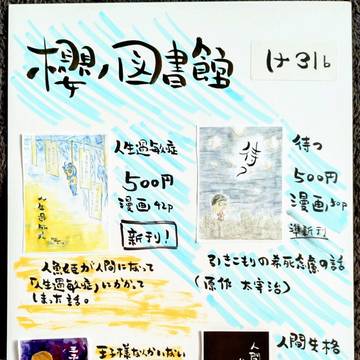 櫻ノ図書館
は31b
人生過敏症
500円
漫画92p
新刊!
人生過敏症
待つ
500円
漫画30p
準新刊
待つ
人魚姫が人間になって
「人生過敏症」にかかって
しまった話。
引きこもりの希死念慮の話
(原作 太宰治)
王子様なんかいない
人間失格